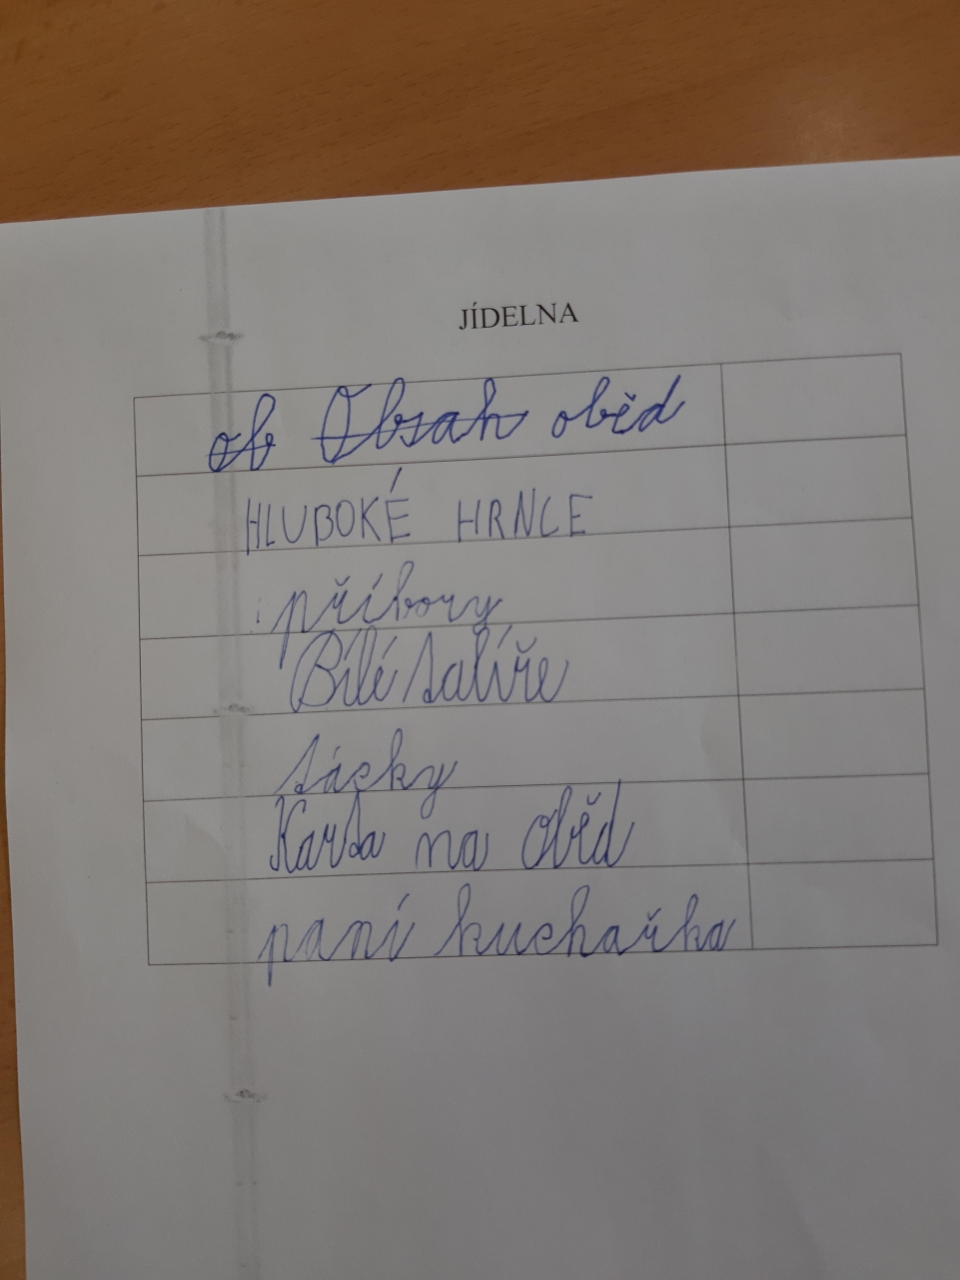 JÍDELNA
ob Obsah oběd
HLUBOKÉ HRNCE
příbory
Bílé talíře
tácky
Karta na Oběd
paní kuchařka